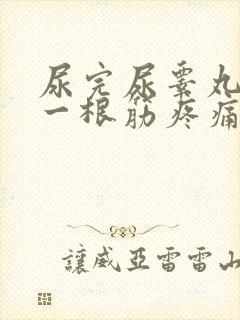 尿完尿睾丸
一根筋疼痛
讓威亞雷雷山